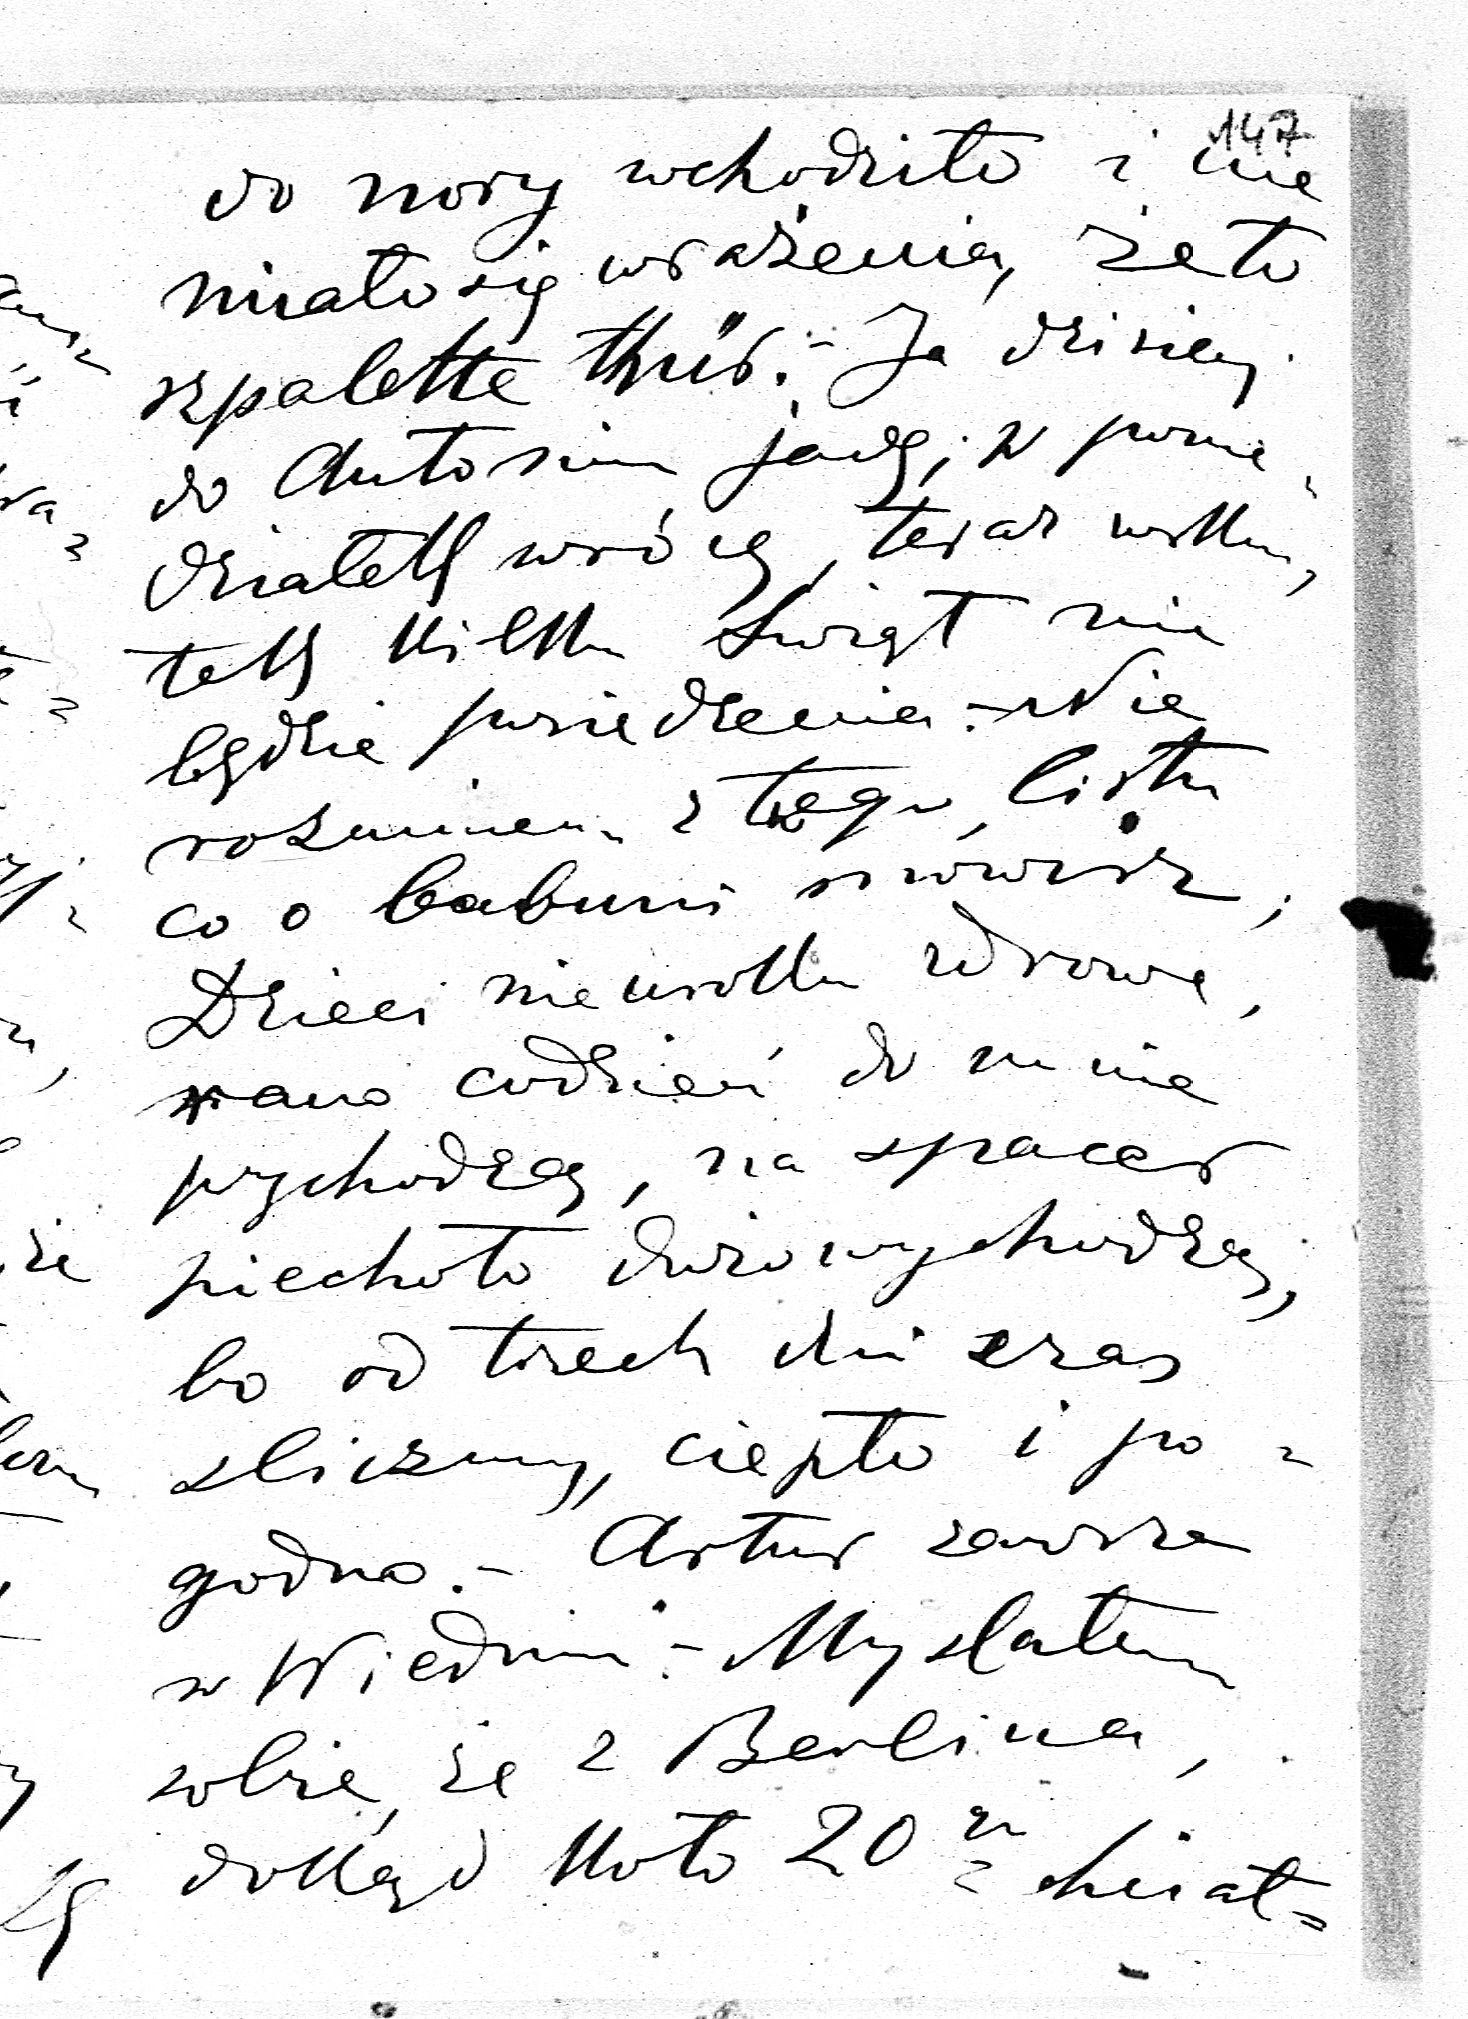 147
do nory wchodziło i nie
miało się wrażenia, że to
szpalette thür.- Ja dzisiaj
do Antonin jadę, w ponie-
działek wrócę, teraz wsku-
tek kilku Świąt nie
będzie posiedzenia.- Nie
rozumiem z tego listu
co o babuni mówisz,
Dzieci nie wroku zdrowe,
rano codzień do mnie
przychodzą, na spacer
piechoto dużo wychodzą,
bo od trzech dni czas
sliczny, ciepło i po-
godno.- Artur zawsze
w Wiedniu.- Myslałem
sobie, że z Berlina,
dokąd koło 20 chciał-